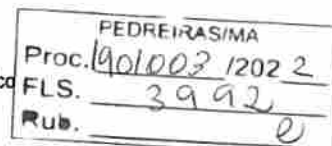 PEDREIRAS/MA
Proc. 1901003 /2022
FLS. 3992
Rub.